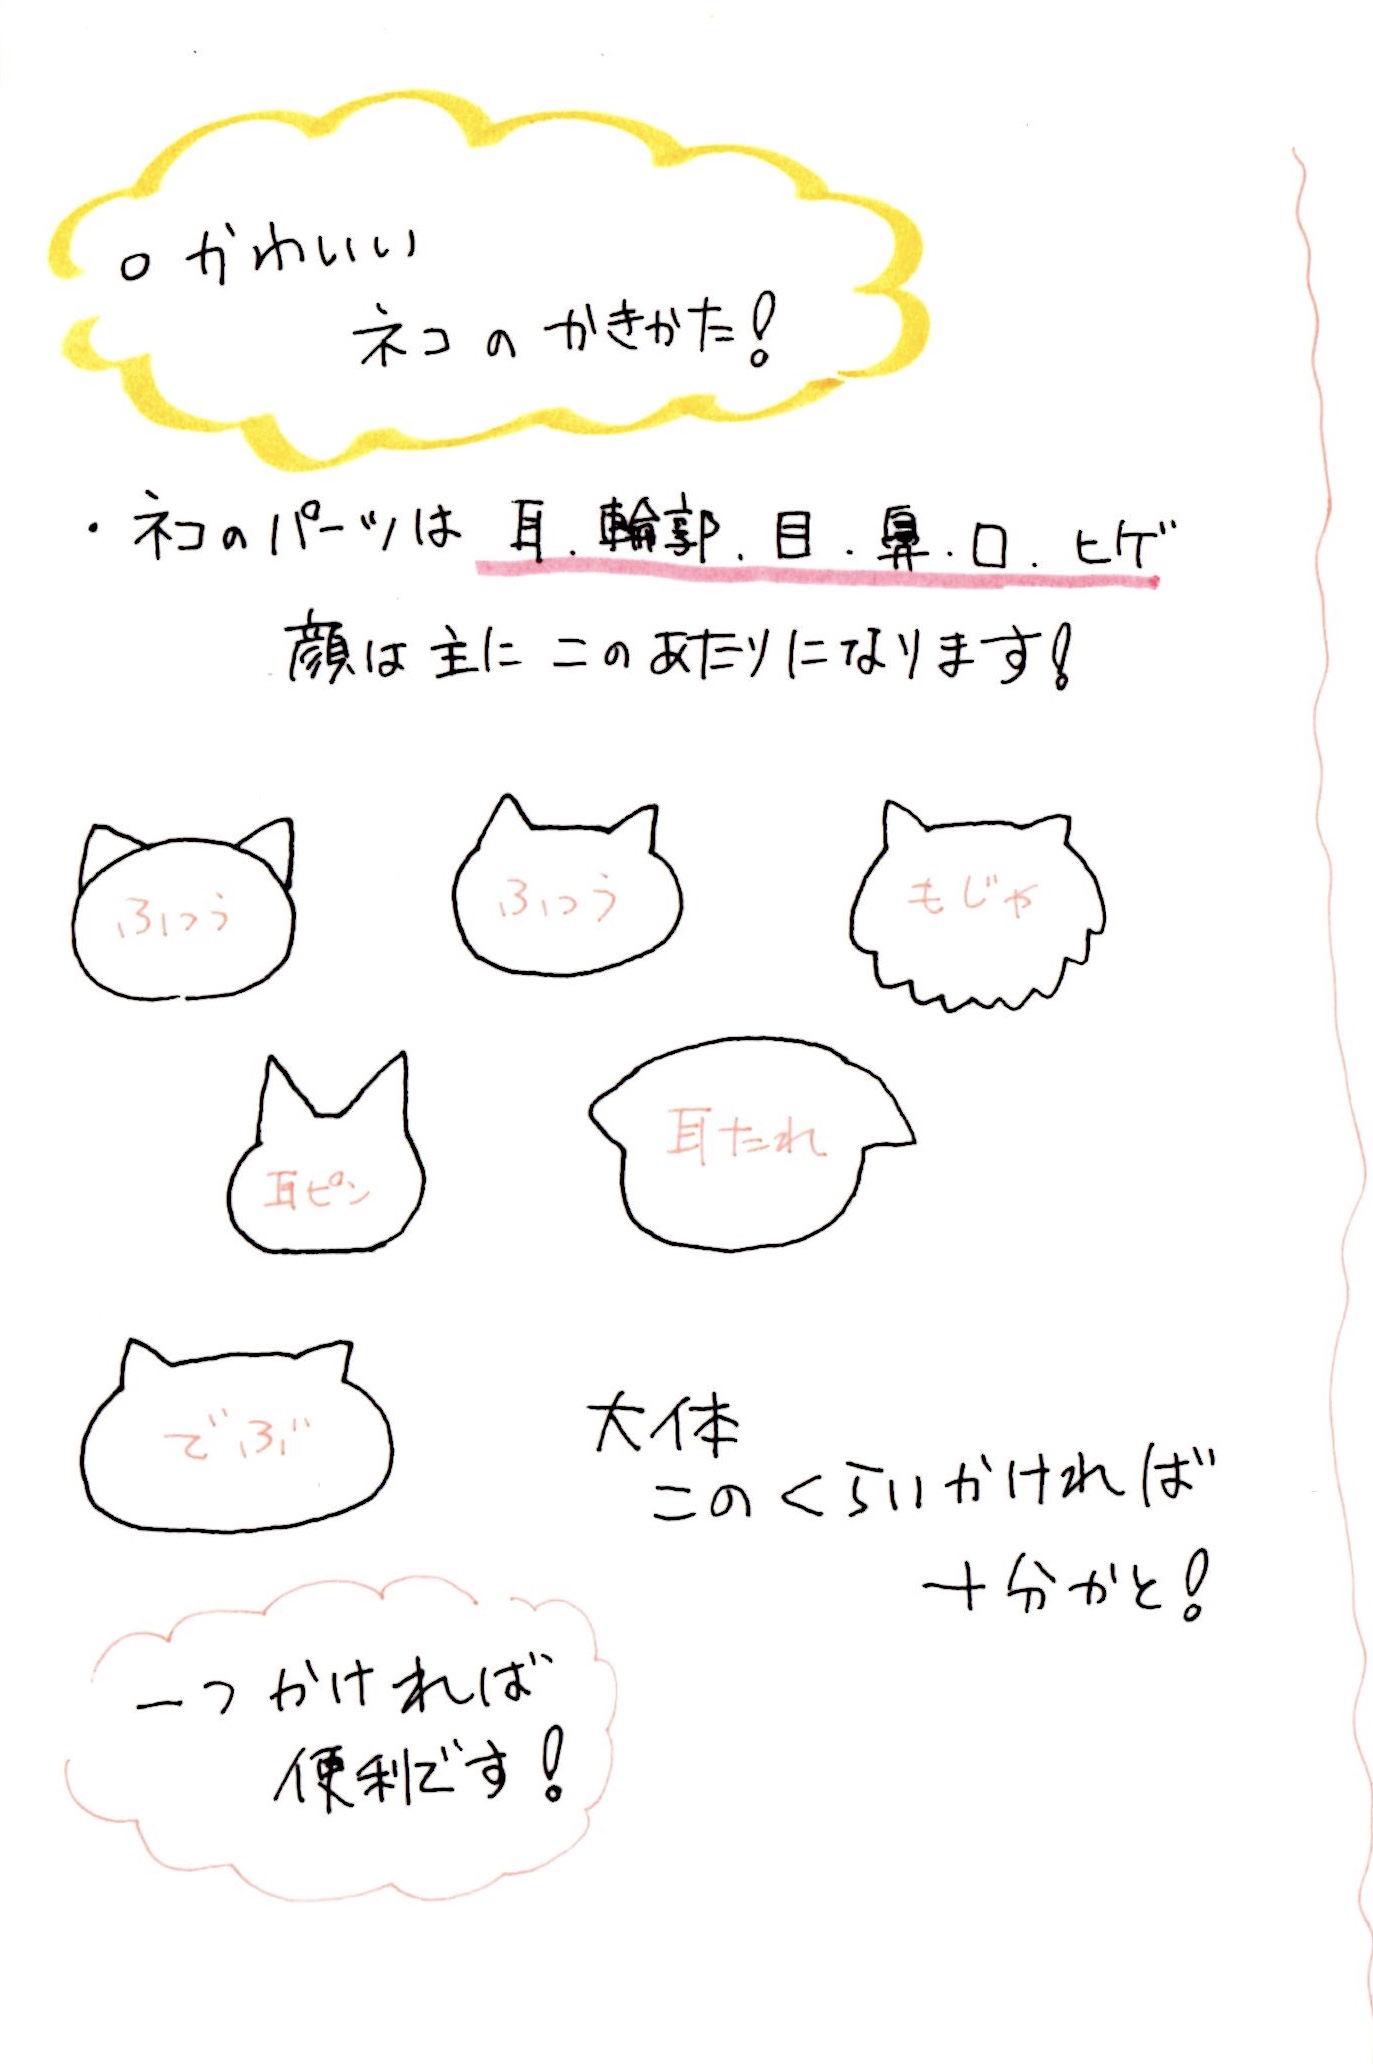 ○かわいい
ネコのかきかた!
・ネコのパーツは 耳.輪郭.目.鼻.口.ヒゲ
顔は主にこのあたりになります!
ふつう
ふつう
もじゃ
耳ピン
耳たれ
でぶ
大体
このくらいかければ
十分かと!
一つかければ
便利です!